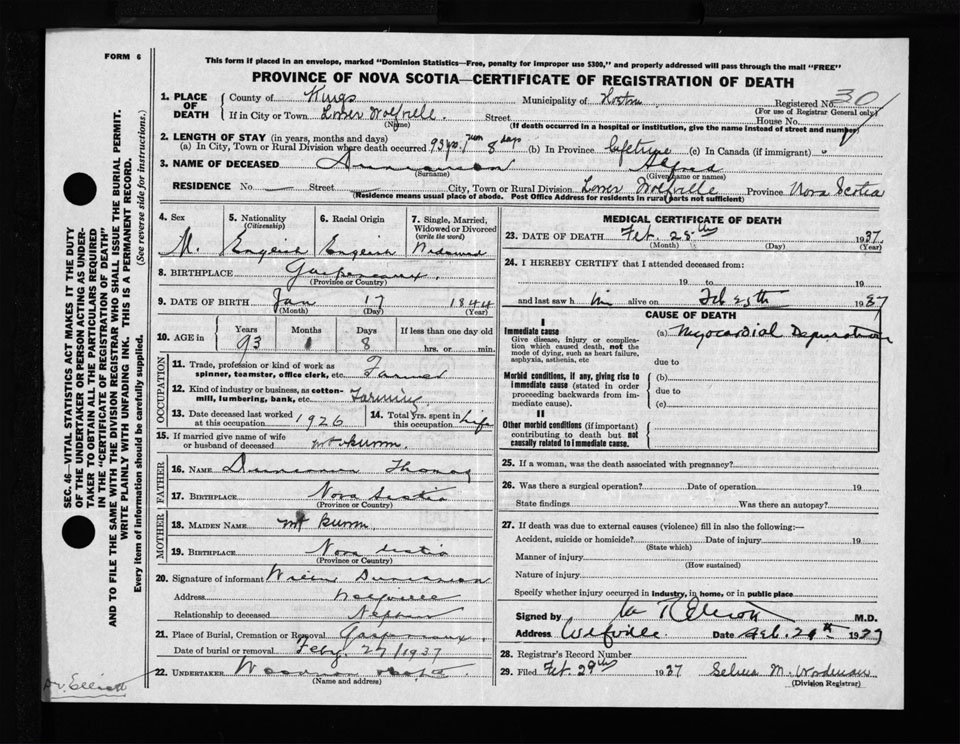 FORM 6
This form if placed in an envelope, marked "Dominion Statistics—Free, penalty for improper use $300," and properly addressed will pass through the mail "FREE"
PROVINCE OF NOVA SCOTIA—CERTIFICATE OF REGISTRATION OF DEATH
SEC. 46—VITAL STATISTICS ACT MAKES IT THE DUTY
OF THE UNDERTAKER OR PERSON ACTING AS UNDER-
TAKER TO OBTAIN ALL THE PARTICULARS REQUIRED
IN THE "CERTIFICATE OF REGISTRATION OF DEATH"
AND TO FILE THE SAME WITH THE DIVISION REGISTRAR WHO SHALL ISSUE THE BURIAL PERMIT.
WRITE PLAINLY WITH UNFADING INK. THIS IS A PERMANENT RECORD.
Every item of information should be carefully supplied. (See reverse side for instructions.)
1. PLACE OF DEATH
County of Kings Municipality of Horton Registered No. 30
(For use of Registrar General only)
If in City or Town Lower Wolfville Street House No.
(Name) (If death occurred in a hospital or institution, give the name instead of street and number)
2. LENGTH OF STAY (in years, months and days)
(a) In City, Town or Rural Division where death occurred 93 yrs. 8 days (b) In Province lifetime (c) In Canada (if immigrant) "
3. NAME OF DECEASED Alfred
(Surname) (Given name or names)
RESIDENCE No. — Street — City, Town or Rural Division Lower Wolfville Province Nova Scotia
(Residence means usual place of abode. Post Office Address for residents in rural parts not sufficient)
4. Sex 5. Nationality (Citizenship) 6. Racial Origin 7. Single, Married, Widowed or Divorced (write the word)
M. English English Widowed
8. BIRTHPLACE Gaspereaux.
(Province or Country)
9. DATE OF BIRTH Jan 17 1844
(Month) (Day) (Year)
10. AGE in Years Months Days If less than one day old
93 8 hrs. or min.
OCCUPATION
11. Trade, profession or kind of work as spinner, teamster, office clerk, etc. Farmer
12. Kind of industry or business, as cotton-mill, lumbering, bank, etc. Farming
13. Date deceased last worked at this occupation 1926 14. Total yrs. spent in this occupation Life
15. If married give name of wife or husband of deceased
FATHER
16. NAME Thomas
17. BIRTHPLACE Nova Scotia
(Province or Country)
MOTHER
18. MAIDEN NAME
19. BIRTHPLACE Nova Scotia
(Province or Country)
20. Signature of informant
Address Wolfville
Relationship to deceased Nephew
21. Place of Burial, Cremation or Removal Gaspereaux.
Date of burial or removal Feby 27/1937
22. UNDERTAKER
(Name and address)
Dr. Elliott
MEDICAL CERTIFICATE OF DEATH
23. DATE OF DEATH Feb. 25th 1937
(Month) (Day) (Year)
24. I HEREBY CERTIFY that I attended deceased from:
19 to 19
and last saw h im alive on Feb 25th 1937
CAUSE OF DEATH
I
Immediate cause
Give disease, injury or complication which caused death, not the mode of dying, such as heart failure, asphyxia, asthenia, etc
(a) Myocardial Degeneration
due to
Morbid conditions, if any, giving rise to immediate cause (stated in order proceeding backwards from immediate cause).
(b)
due to
(c)
II
Other morbid conditions (if important) contributing to death but not causally related to immediate cause.
25. If a woman, was the death associated with pregnancy?
26. Was there a surgical operation? Date of operation 19
State findings Was there an autopsy?
27. If death was due to external causes (violence) fill in also the following:—
Accident, suicide or homicide? Date of injury 19
(State which)
Manner of injury
(How sustained)
Nature of injury
Specify whether injury occurred in industry, in home, or in public place
Signed by M.D.
Address Wolfville. Date 1937
28. Registrar's Record Number
29. Filed Feb. 29th 1937 Selina M. Woodman
(Division Registrar)